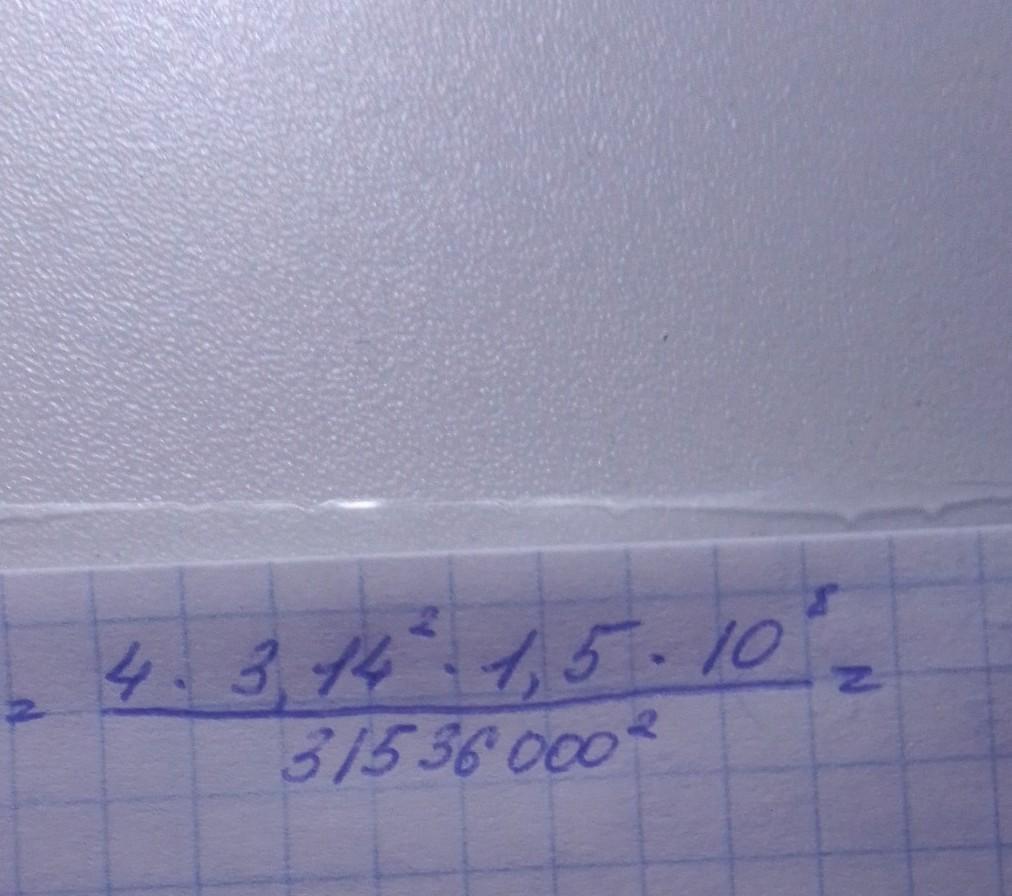 = 4 · 3,14² · 1,5 · 10⁸ =
31536000²